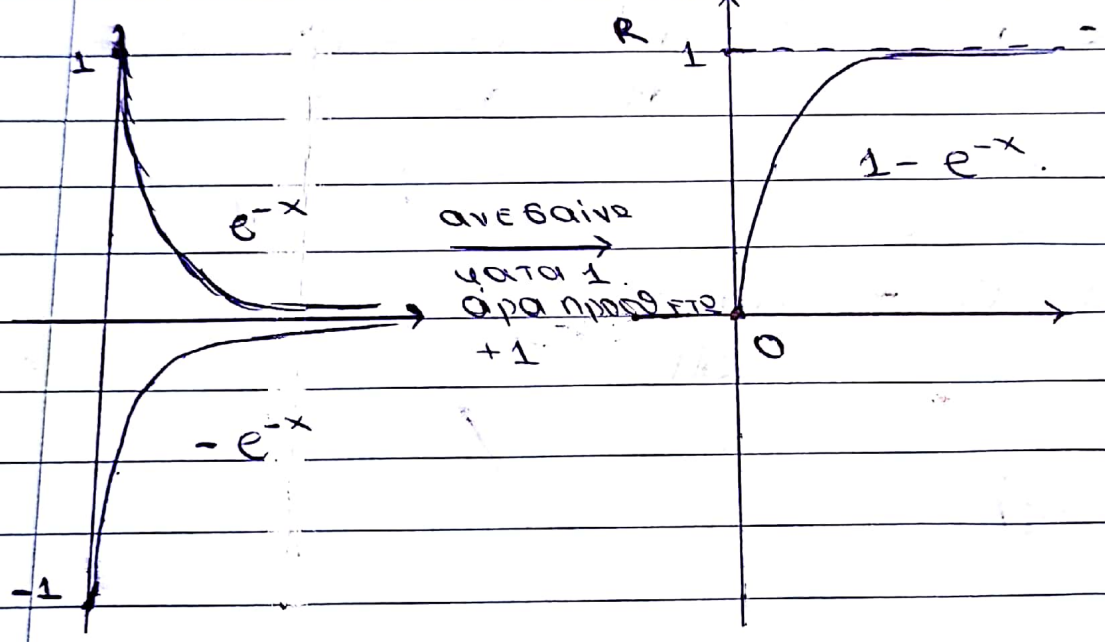 1
e^{-x}
-e^{-x}
-1
ανεβαίνω
κατά 1.
άρα προσθέτω
+1
R
1
1-e^{-x}.
0